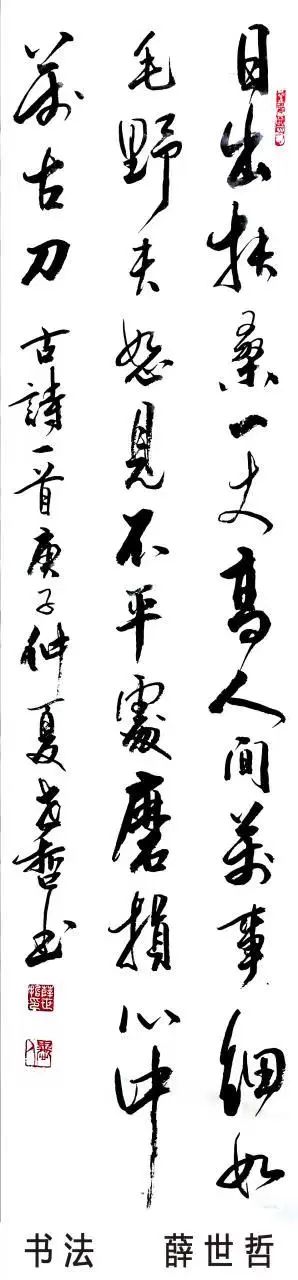 日出扶桑一丈高人間萬事細如
毛野夫怒見不平處磨損心中
萬古刀 古詩一首庚子仲夏世哲书
书法 薛世哲